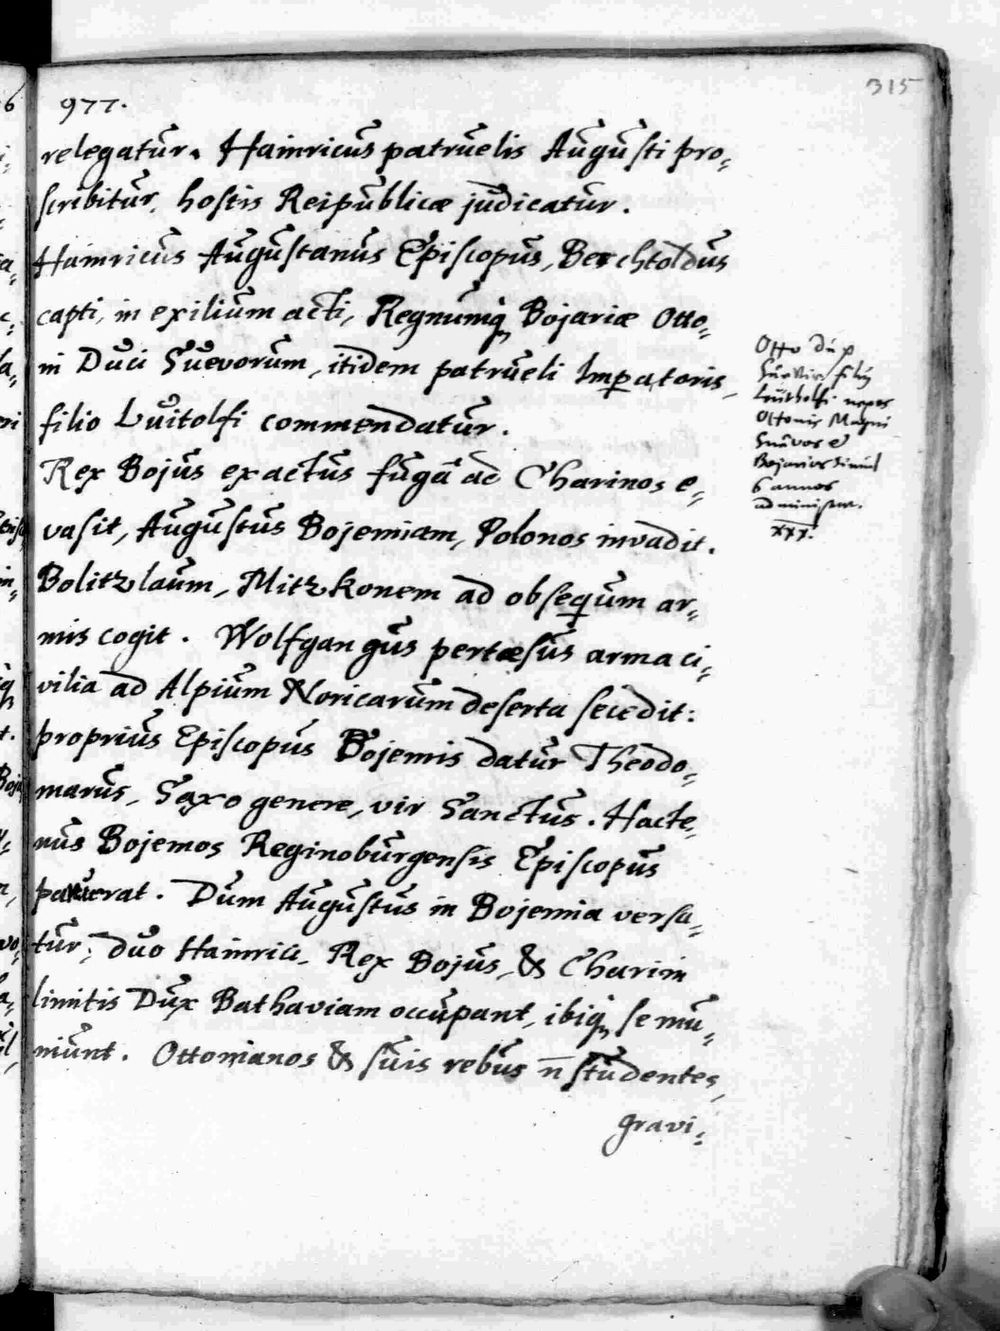 315
977.
relegatur. Hainricus patruelis Augusti pro-
scribitur, hostis Reipublicæ judicatur.
Hainricus Augustanus Episcopus, Berchtoldus
capti, in exilium acti, Regnumq Bojariæ Otto-
ni Duci Suevorum, itidem patrueli Imperatoris,
filio Luitolfi commendatur.
Rex Bojus exactus fugâ ad Charinos e-
vasit, Augustus Bojemiam, Polonos invadit.
Bolitzlaum, Mitzkonem ad obsequm ar-
mis cogit. Wolfgangus pertæsus arma ci-
vilia ad Alpium Noricarum deserta secedit:
proprius Episcopus Bojemis datur Theodo-
marus, Saxo genere, vir Sanctus. Hacte-
nus Bojemos Reginoburgensis Episcopus
paverat. Dum Augustus in Bojemia versa-
tur, duo Hainrici, Rex Bojus, & Charini
limitis Dux Bathaviam occupant, ibiq se mu-
niunt. Ottonianos & suis rebus n̄ studentes,
gravi-
Otto dux
filius
Leutholfi nepos
Ottonis Magni
Suevos &
Bojarios simul
6 annos
administra.
xxx.